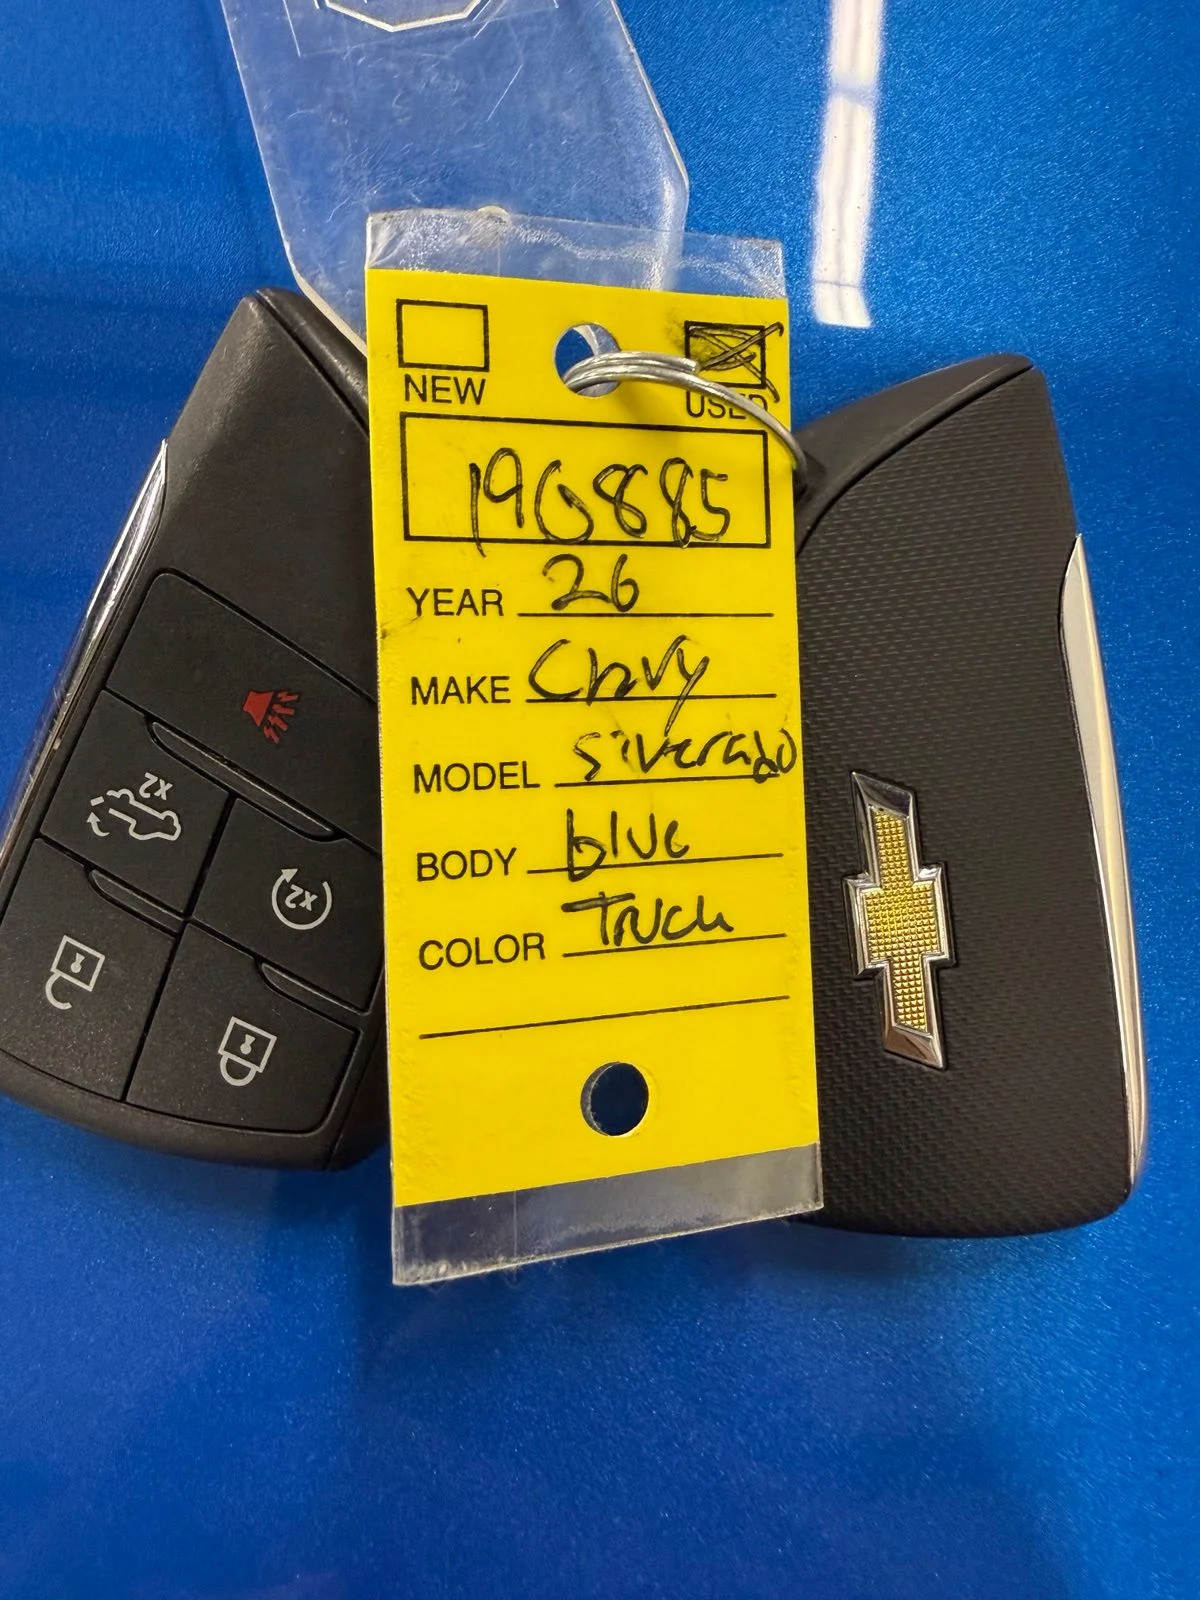 NEW
USED
190885
YEAR 26
MAKE Chvy
MODEL Silverado
BODY blue
COLOR Truck
x2
x2